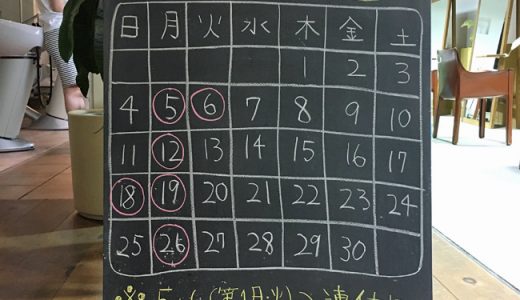 日 月 火 水 木 金 土
1 2 3
4 5 6 7 8 9 10
11 12 13 14 15 16 17
18 19 20 21 22 23 24
25 26 27 28 29 30
※ 5.6(第1月火)